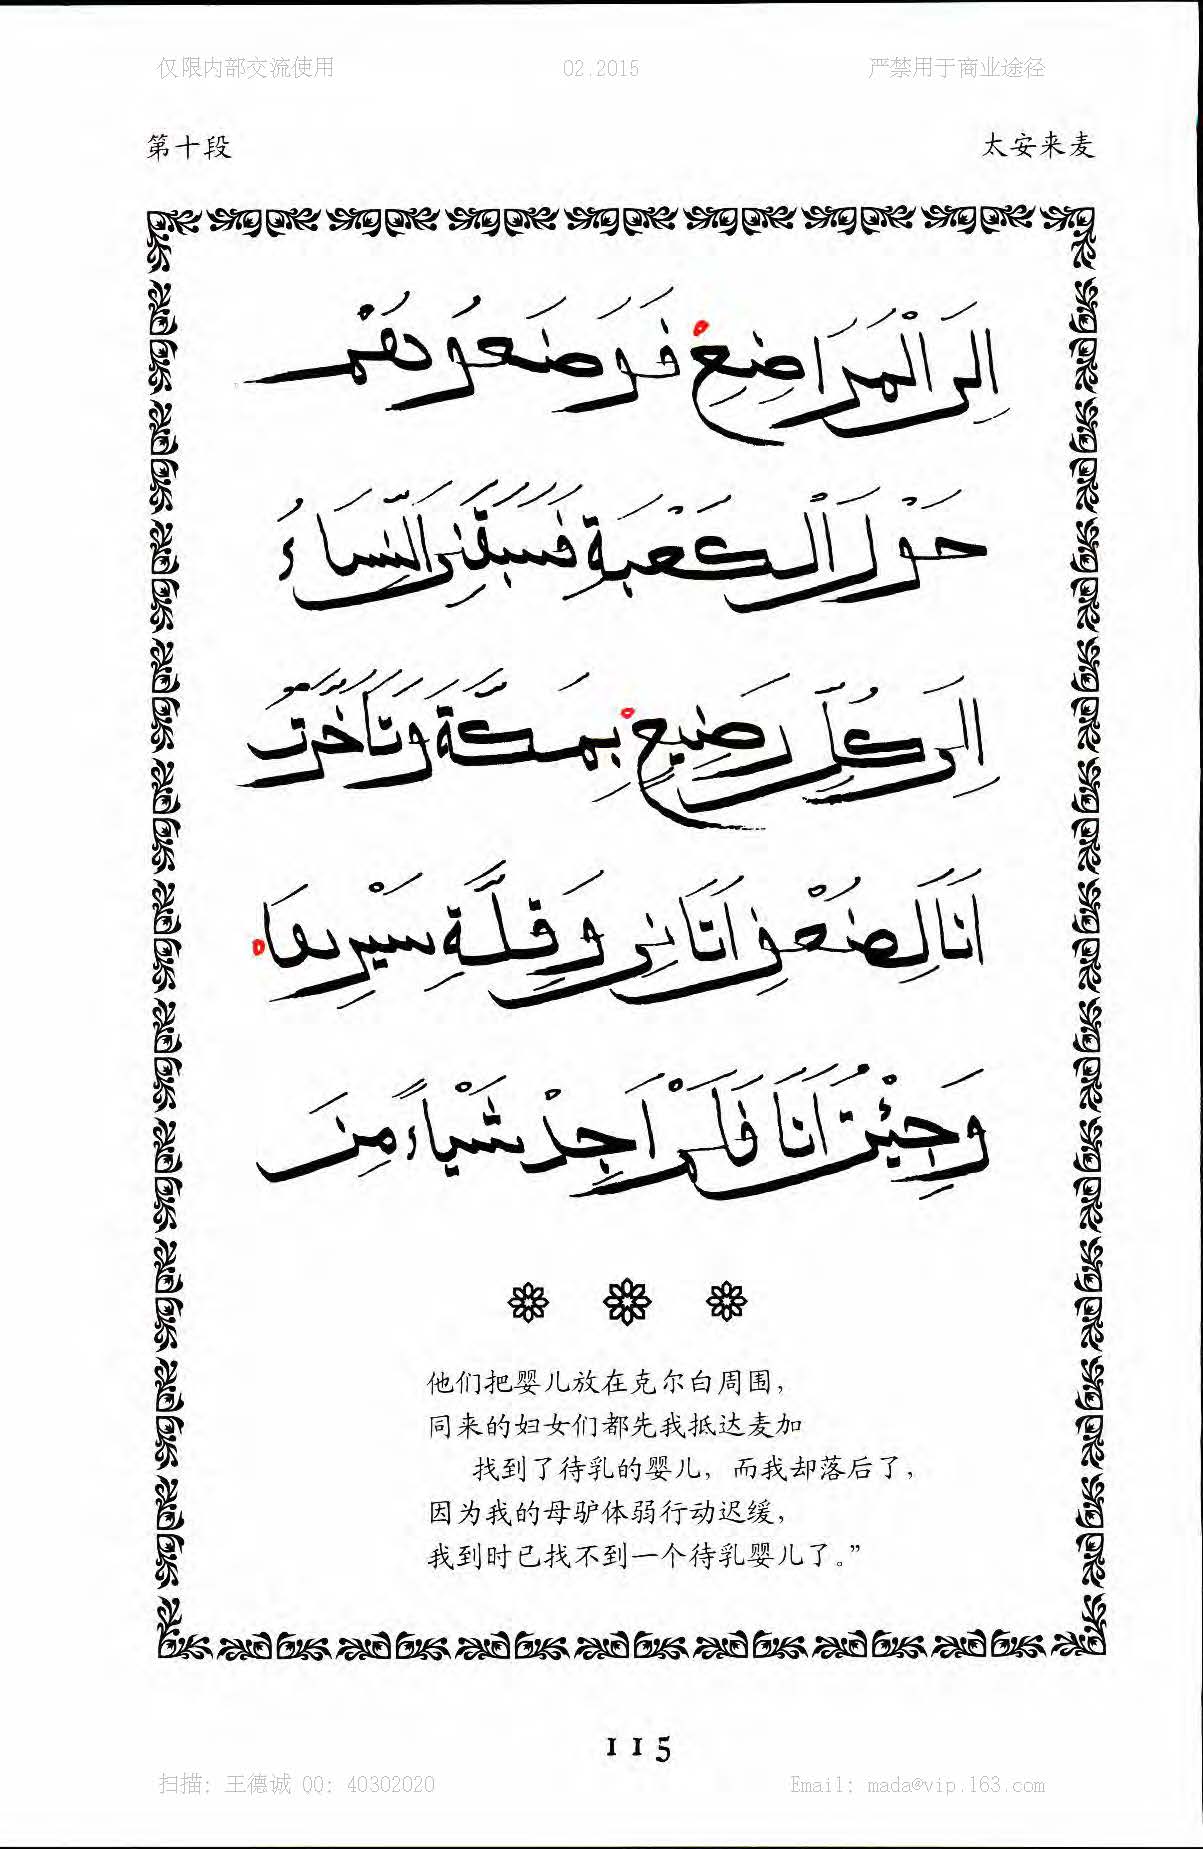 仅限内部交流使用 02.2015 严禁用于商业途径
第十段 太安来麦
اِلَى الْمَرَاضِعِ فَوَضَعُوهُمْ
حَوْلَ الْكَعْبَةِ فَسَبَقَنِى النِّسَاءُ
اِلَى كُلِّ رَضِيعٍ بِمَكَّةَ وَتَأَخَّرْتُ
اَنَا لِضُعْفِ اَتَانِى وَقِلَّةِ سَيْرِهَا
وَجِئْتُ اَنَا فَلَمْ اَجِدْ شَيْاءً مِنَ
他们把婴儿放在克尔白周围，
同来的妇女们都先我抵达麦加
找到了待乳的婴儿，而我却落后了，
因为我的母驴体弱行动迟缓，
我到时已找不到一个待乳婴儿了。”
115
扫描：王德诚 QQ：40302020 Email：mada@vip.163.com